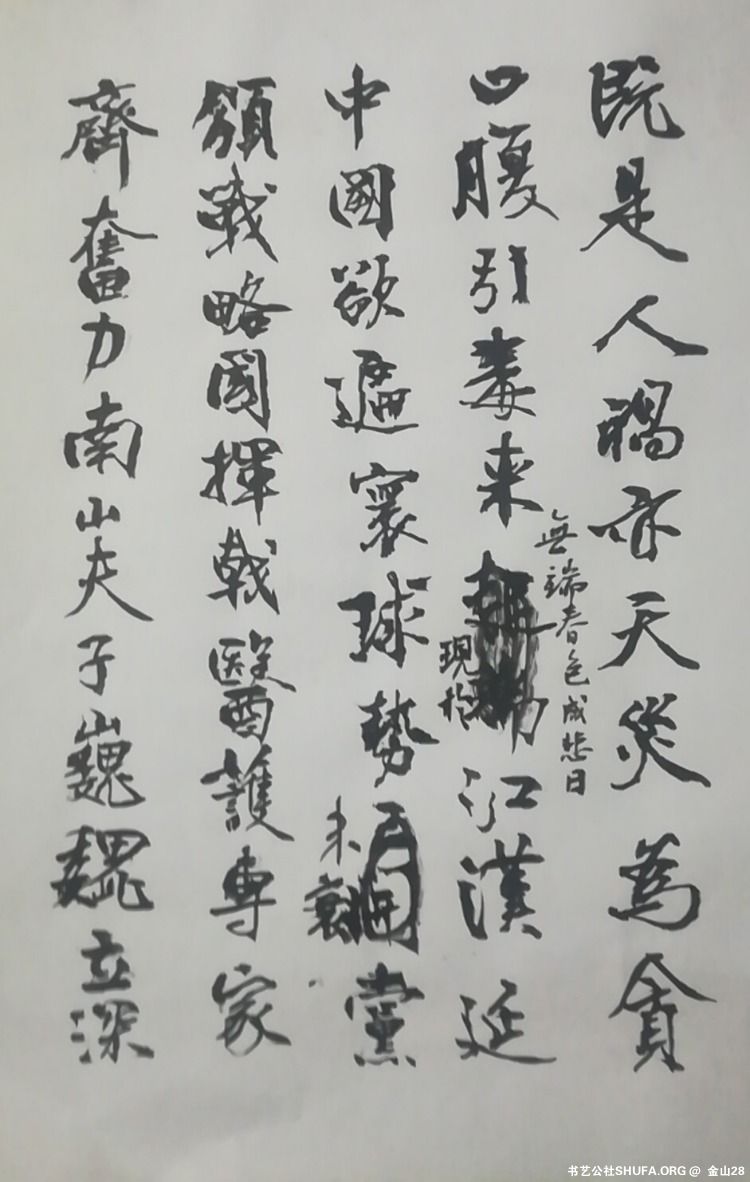 既是人禍亦天災為貪
無端春色成愁日
口腹引毒来江漢延
現於
中國欲遍寰球勢黨
未衰
領戰略國揮戟醫護專家
齊奮力南山夫子巍巍立深
书艺公社SHUFA.ORG @ 金山28